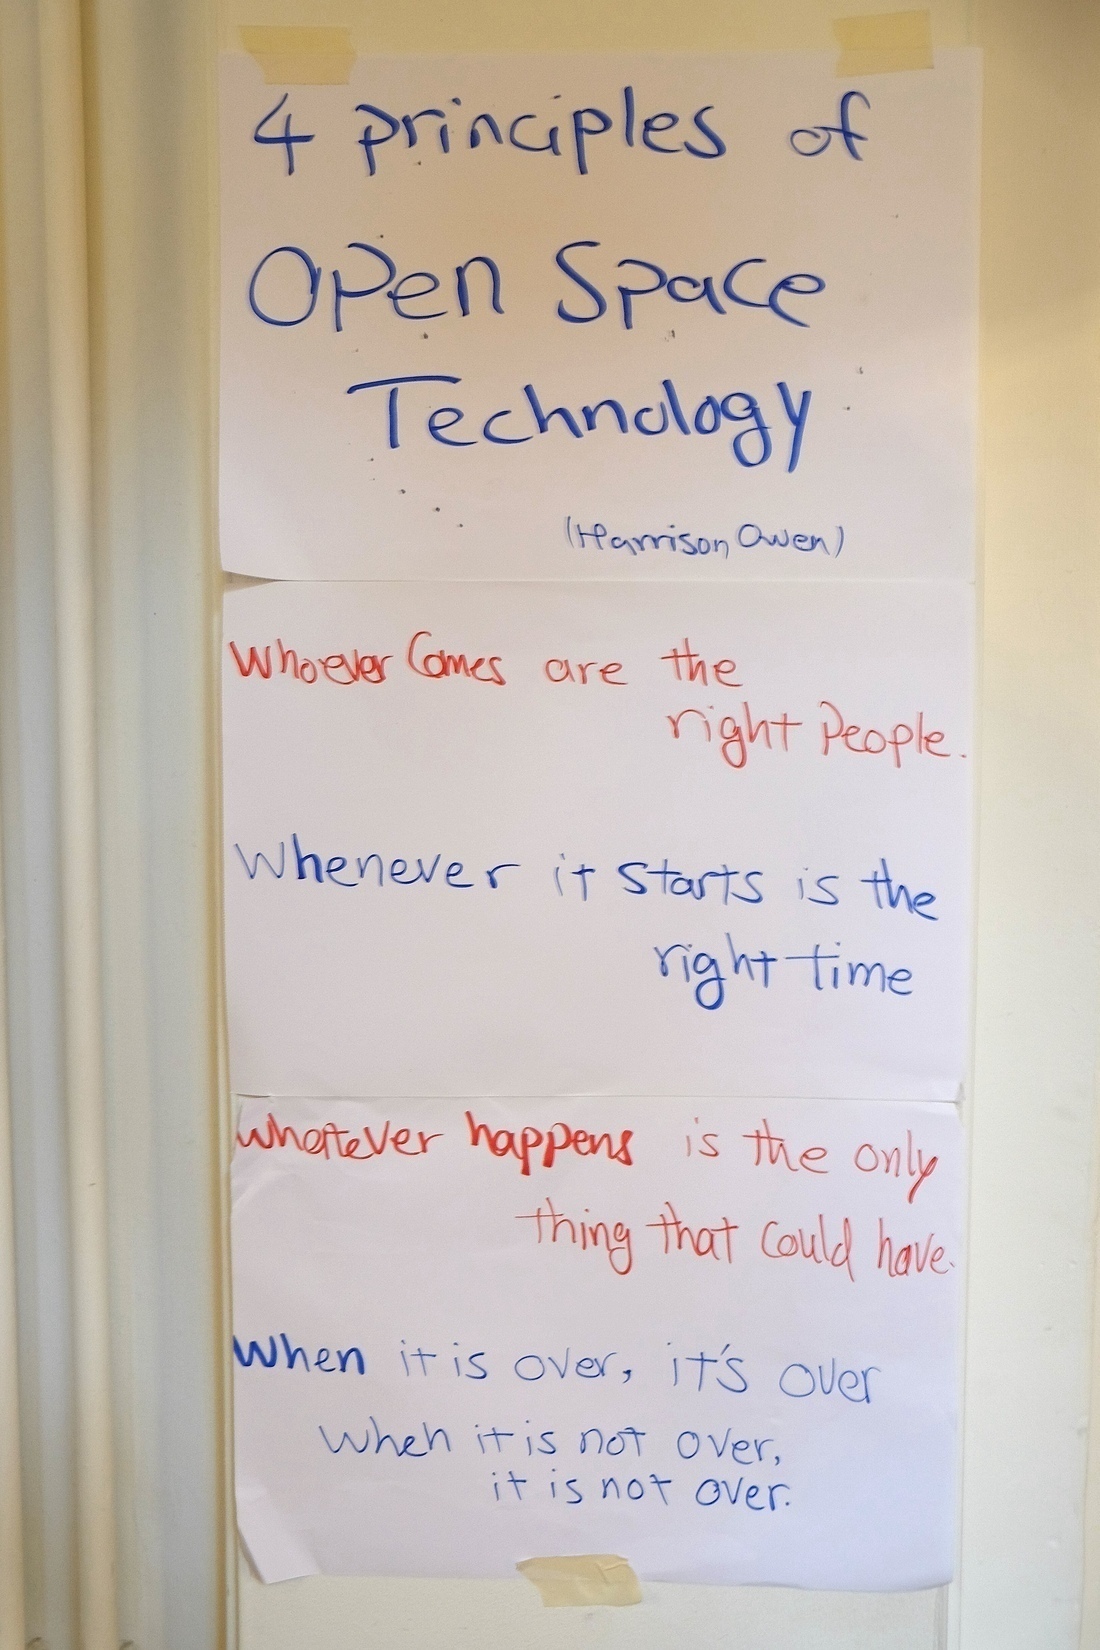 4 principles of
Open Space
Technology
(Harrison Owen)
Whoever Comes are the
right People.
Whenever it starts is the
right time
Whatever happens is the only
thing that could have.
When it is over, it's over
When it is not over,
it is not over.